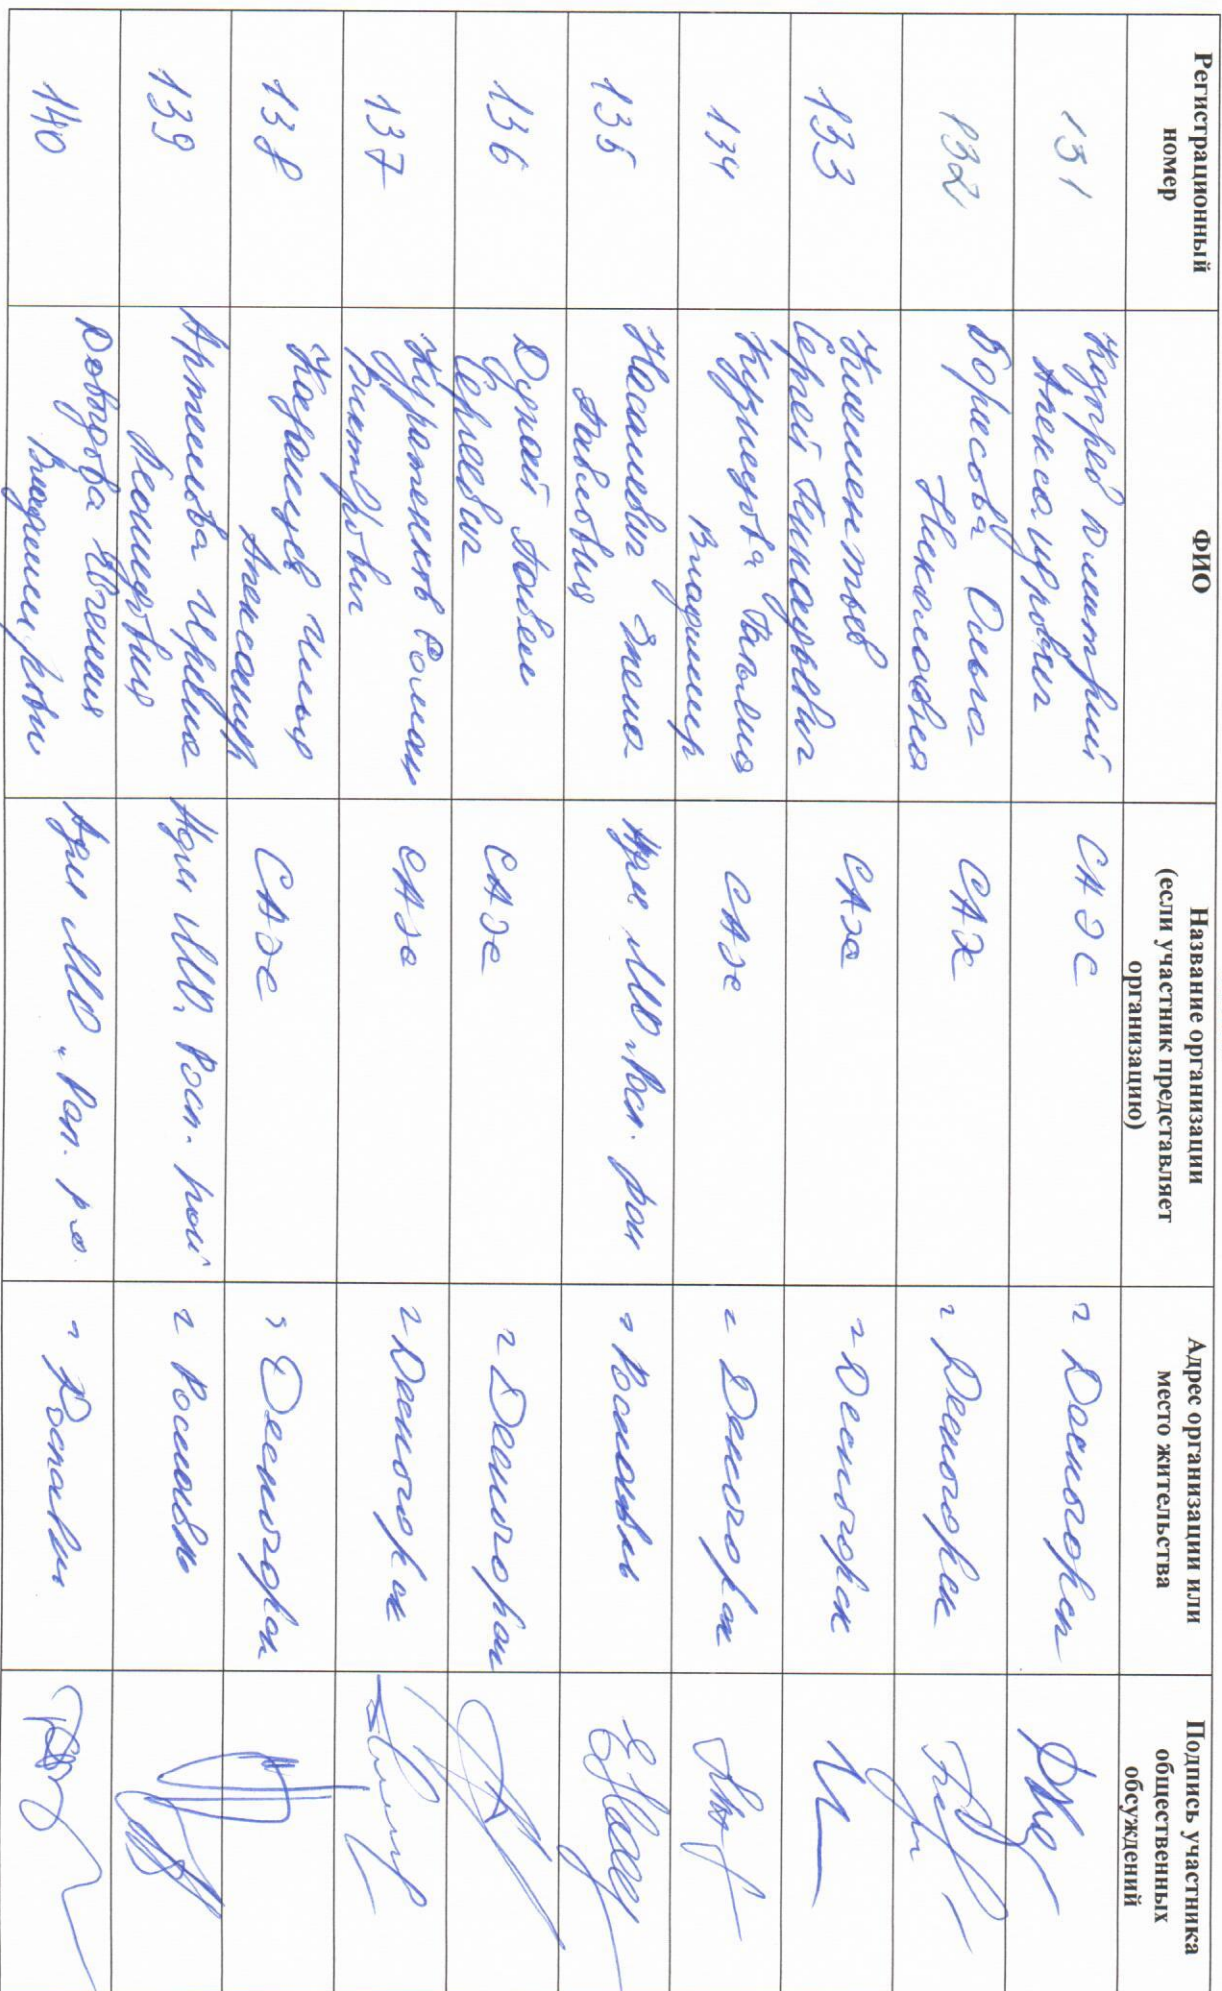 Регистрационный номер
ФИО
Название организации
(если участник представляет
организацию)
Адрес организации или
место жительства
Подпись участника
общественных
обсуждений
131
Дмитрий
САЭС
г Десногорск
132
Борисова Ольга
Николаевна
САЭС
г Десногорск
133
Климентьев
Сергей Геннадьевич
САЭС
г Десногорск
134
Кузнецова Татьяна
Владимир
САЭС
г Десногорск
135
Елена
Павловна
МО "Росл. рон
г Рославль
136
Дунай Павел
Сергеевич
САЭС
г Десногорск
137
Куратников Роман
Викторович
САЭС
г Десногорск
138
Илья
Александр
САЭС
г Десногорск
139
Артемова Ирина
Леонидовна
Адм МО "Росл. рой
г Рославль
140
Давыдова Евгения
Владимировн
Адм МО "Рол. р-о.
г Рославль